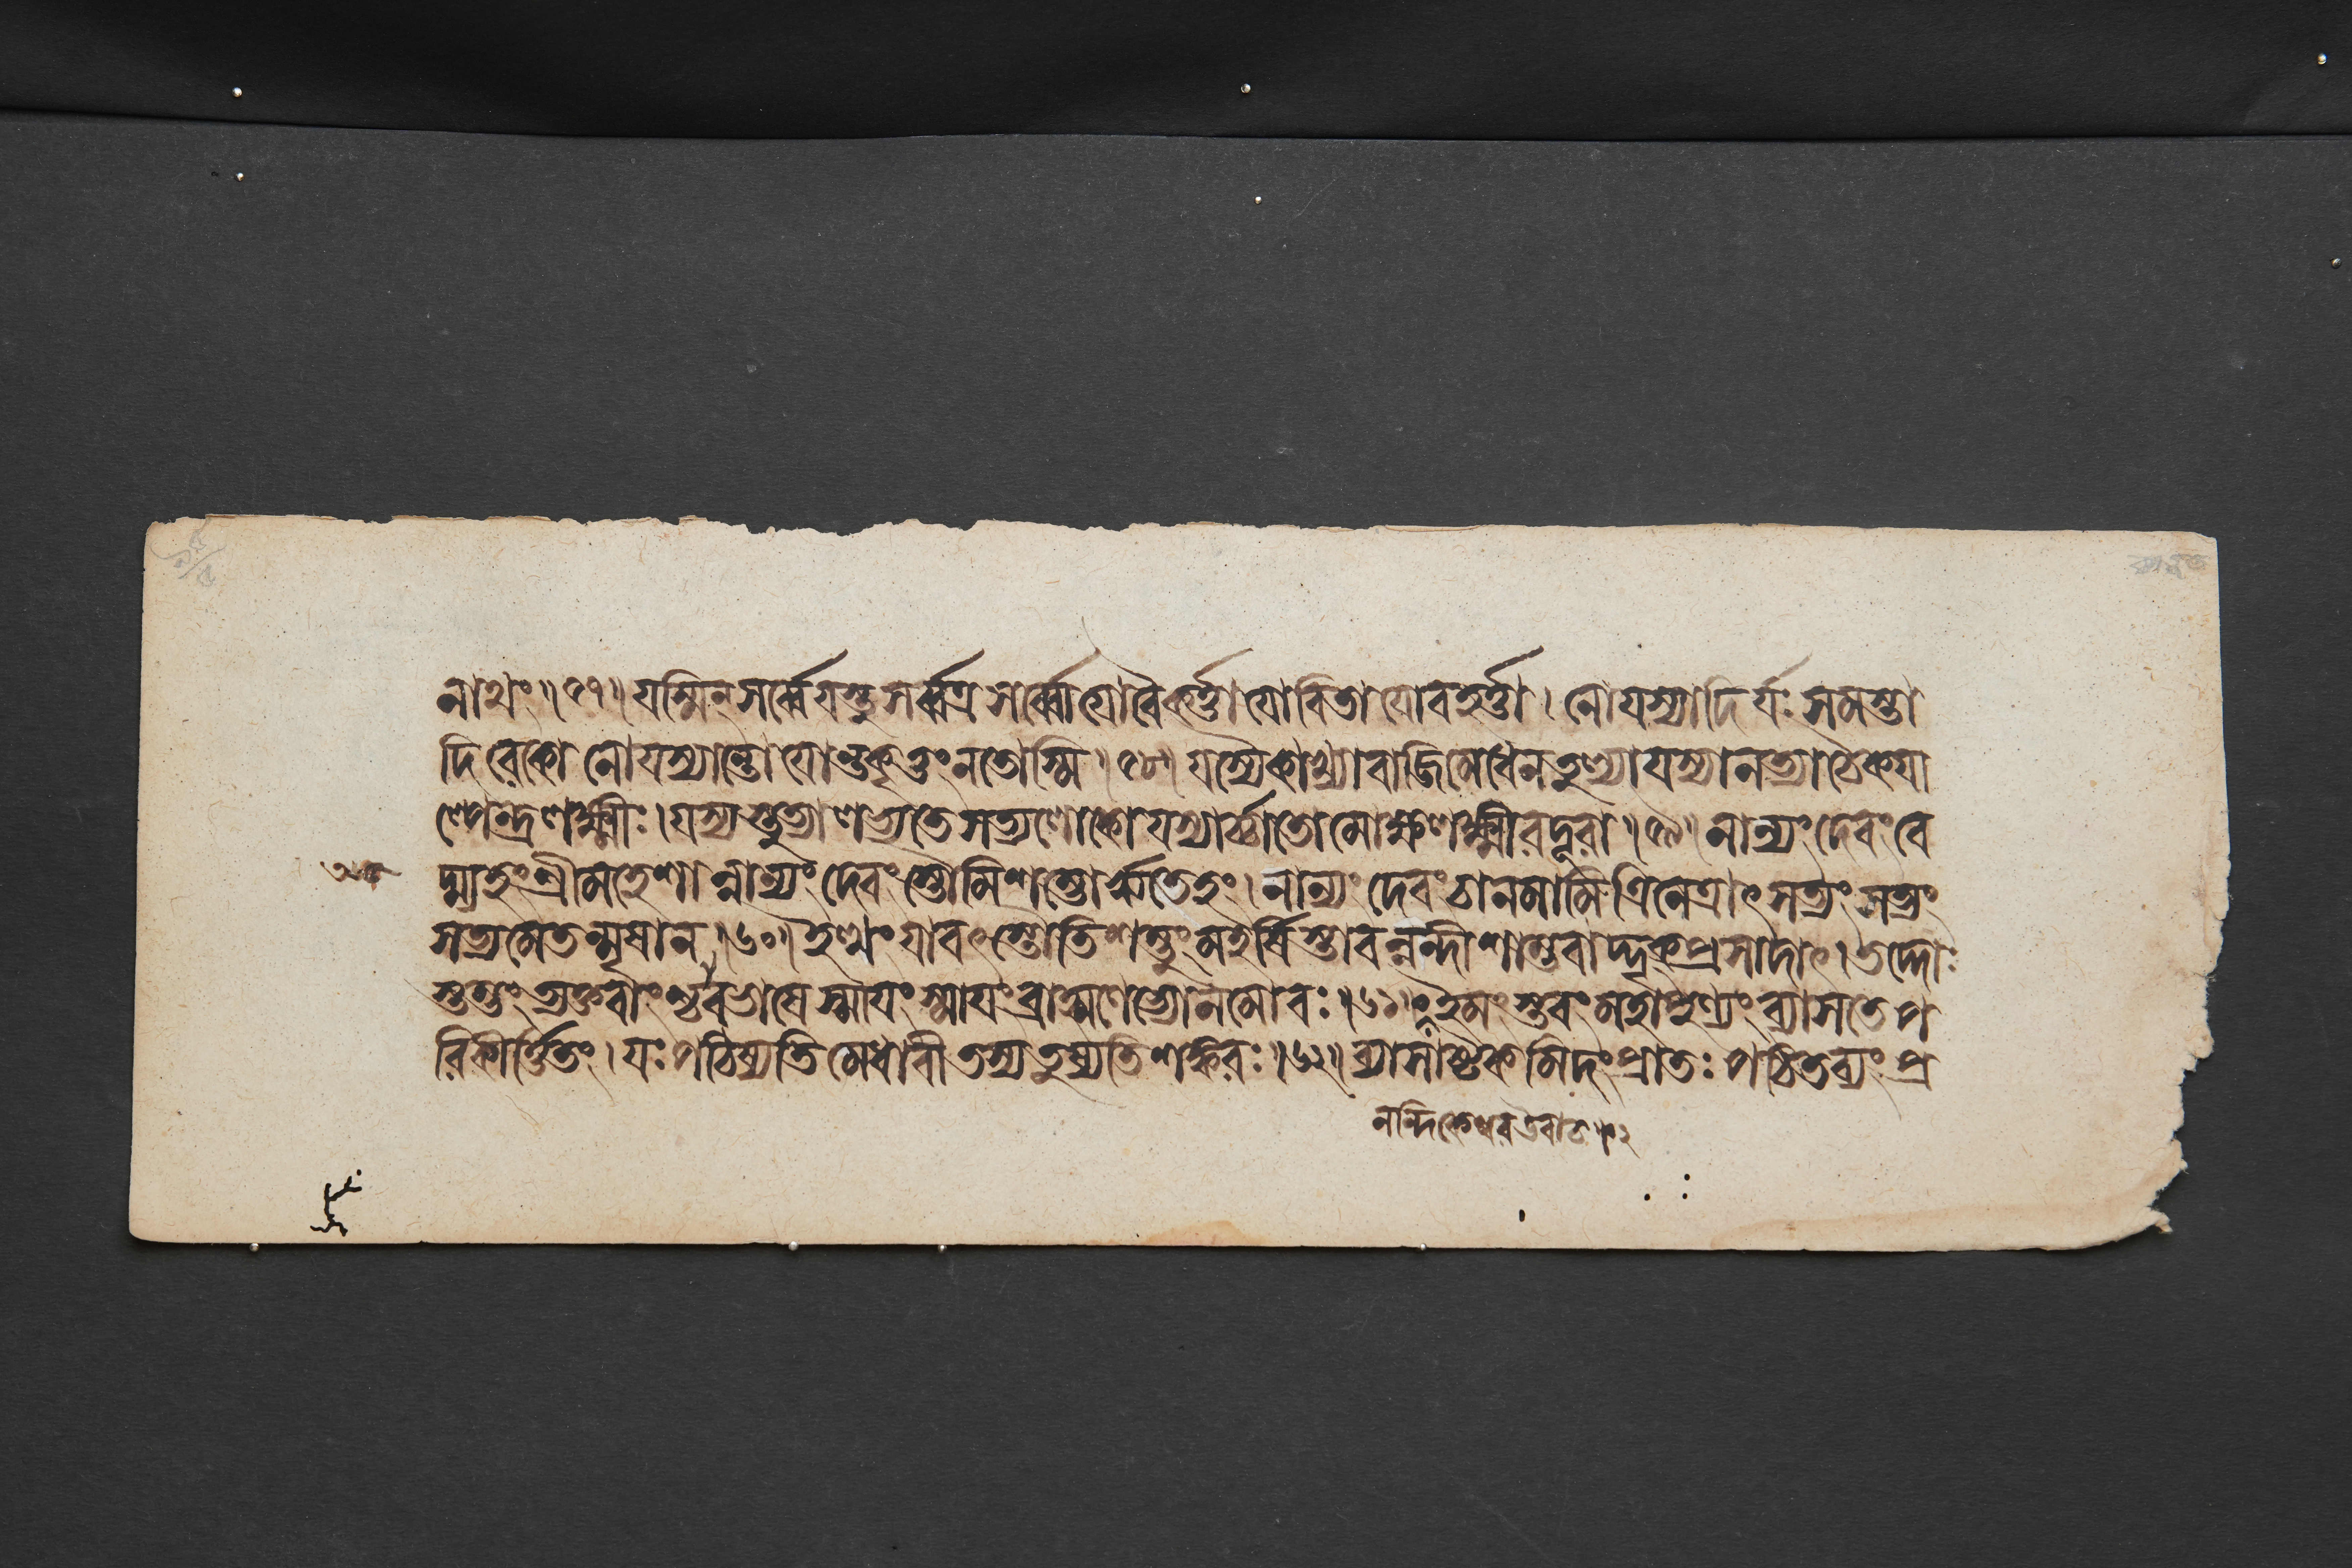 নাথং ॥ ৫৭ ॥ যস্মিন্ সর্ব্বং যস্তু সর্ব্বত্র সর্ব্বো যো বৈ কর্ত্তা যো বিতা যো বহর্ত্তা । নো যস্যাদির্যঃ সমস্তা
দিরেকো নো যস্যান্তো যোন্তকৃত্তং নতোস্মি ॥ ৫৮ ॥ যস্যৈকাখ্যা বাজিমেধেন তুল্যা যস্যা নত্যা চৈকয়া
ল্পেন্দ্রলক্ষ্মীঃ । যস্য স্তুত্যা লভ্যতে সত্যলোকো যস্যার্চ্চাতো মোক্ষলক্ষ্মীরদূরা ॥ ৫৯ ॥ নান্যং দেবং বে
দ্ম্যহং শ্রীমহেশান্নান্যং দেবং স্তৌমি শম্ভোর্ঋতেহং । নান্যং দেবং বা নমামি ত্রিনেত্রাৎ সত্যং সত্যং
সত্যমেতন্মৃষা ন ॥ ৬০ ॥ ইত্থং যাবৎ স্তৌতি শম্ভুং মহর্ষিস্তাবন্নন্দী শাম্ভবাদ্দৃক্প্রসাদাৎ । তদ্দোঃ
স্তম্ভং ত্যক্তবাংশ্চাবভাষে স্মায়ং স্মায়ং ব্রাহ্মণেভ্যো নমো বঃ ॥ ৬১ ॥ ইমং স্তবং মহাপুণ্যং ব্যাস তে প
রিকীর্ত্তিতং । যঃ পঠিষ্যতি মেধাবী তস্য তুষ্যতি শঙ্করঃ ॥ ৬২ ॥ ব্যাসাষ্টকমিদং প্রাতঃ পঠিতব্যং প্র
নন্দিকেশ্বর উবাচ ॥ ২